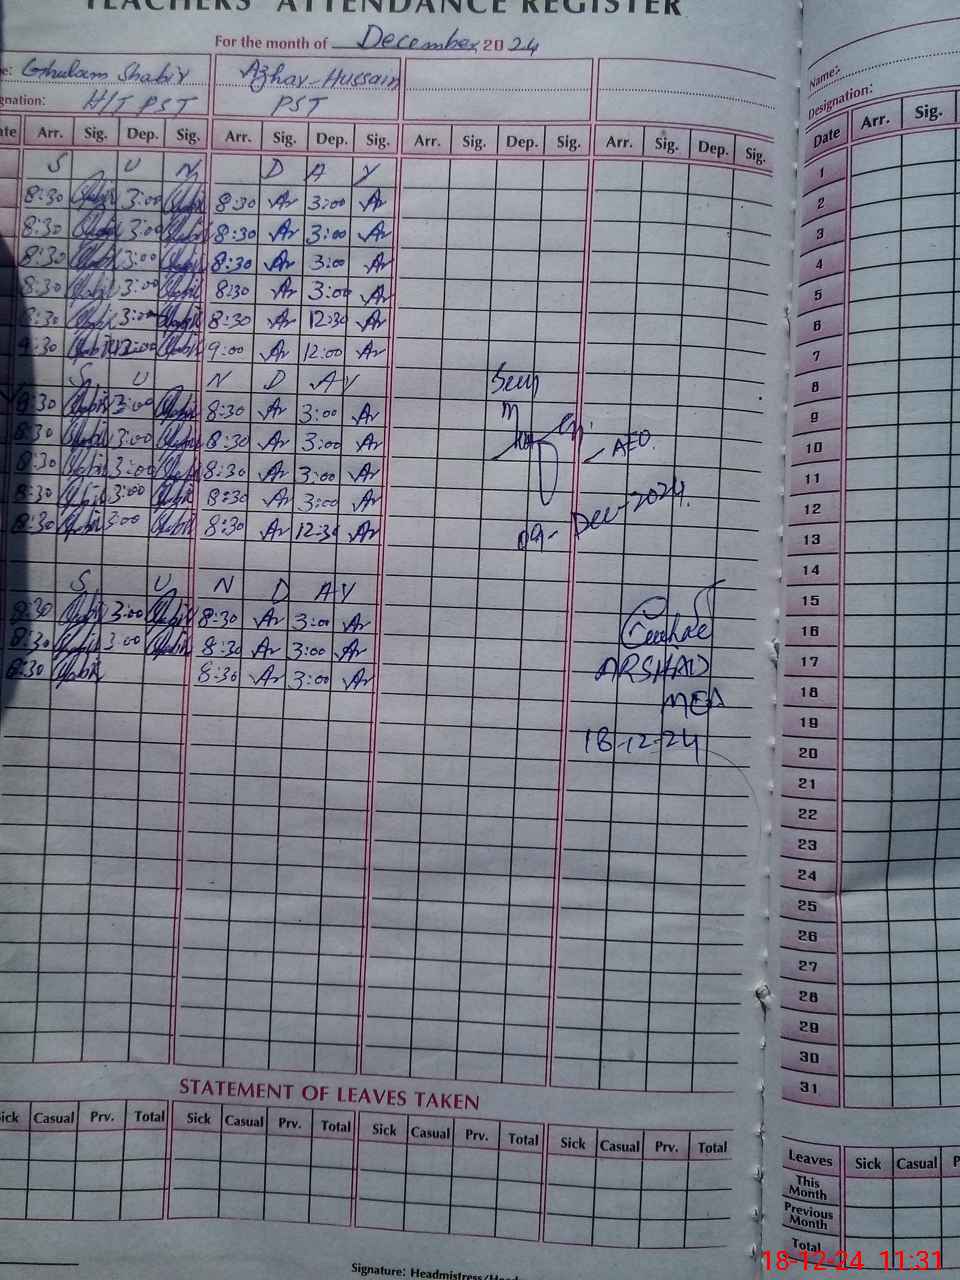 TEACHERS' ATTENDANCE REGISTER
For the month of December 2024
Ghulam Shabir Azhar-Hussain
H/T PST PST
Arr. Sig. Dep. Sig. Arr. Sig. Dep. Sig. Arr. Sig. Dep. Sig. Arr. Sig. Dep. Sig.
S U N D A Y
8:30 3:00 8:30 Ar 3:00 Ar
8:30 3:00 8:30 Ar 3:00 Ar
8:30 3:00 8:30 Ar 3:00 Ar
8:30 3:00 8:30 Ar 3:00 Ar
8:30 8:30 Ar 12:30 Ar
9:30 9:00 Ar 12:00 Ar
S U N D A Y
8:30 3:00 8:30 Ar 3:00 Ar
8:30 3:00 8:30 Ar 3:00 Ar
8:30 3:00 8:30 Ar 3:00 Ar
8:30 3:00 8:30 Ar 3:00 Ar
8:30 3:00 8:30 Ar 12:30 Ar
S U N D A Y
8:30 3:00 8:30 Ar 3:00 Ar
8:30 3:00 8:30 Ar 3:00 Ar
8:30 8:30 Ar 3:00 Ar
AEO.
09-Dec-2024.
ARSHAD
MEA
18-12-24
STATEMENT OF LEAVES TAKEN
Sick Casual Prv. Total Sick Casual Prv. Total Sick Casual Prv. Total Sick Casual Prv. Total
Signature: Headmistress/
Name:
Designation:
Date Arr. Sig.
1
2
3
4
5
6
7
8
9
10
11
12
13
14
15
16
17
18
19
20
21
22
23
24
25
26
27
28
29
30
31
Leaves Sick Casual
This Month
Previous Month
Total
18-12-24 11:31